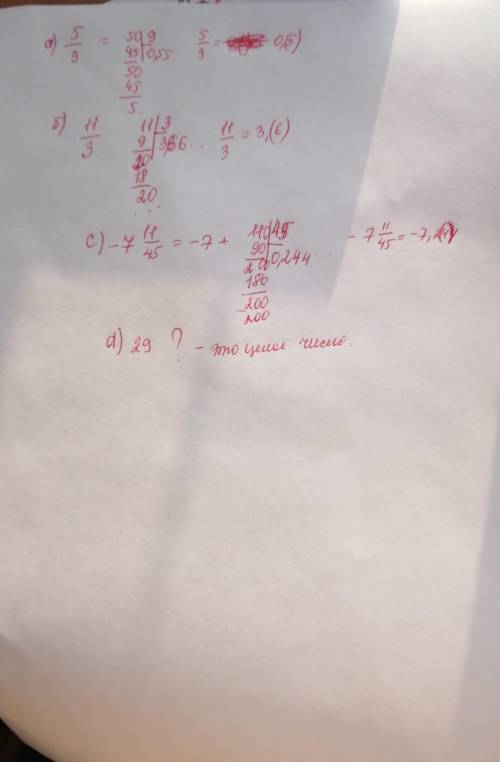 а) 5/9 = 50 | 9   5/9 = 0,(5)
45 | 0,55
50
45
5
б) 11/3   11 | 3   11/3 = 3,(6)
9 | 3,66...
20
18
20
...
с) -7 11/45 = -7 + 110 | 45   -7 11/45 = -7,2(4)
90 | 0,244...
200
180
200
200
d) 29 ? - это целое число.